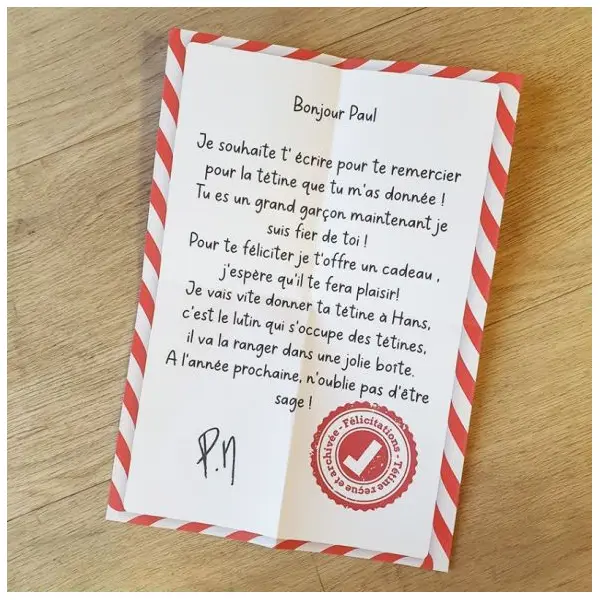 Bonjour Paul
Je souhaite t' écrire pour te remercier
pour la tétine que tu m'as donnée !
Tu es un grand garçon maintenant je
suis fier de toi !
Pour te féliciter je t'offre un cadeau ,
j'espère qu'il te fera plaisir!
Je vais vite donner ta tétine à Hans,
c'est le lutin qui s'occupe des tétines,
il va la ranger dans une jolie boîte.
A l'année prochaine, n'oublie pas d'être
sage !
P.N
Félicitations - Tétine reçue et archivée -